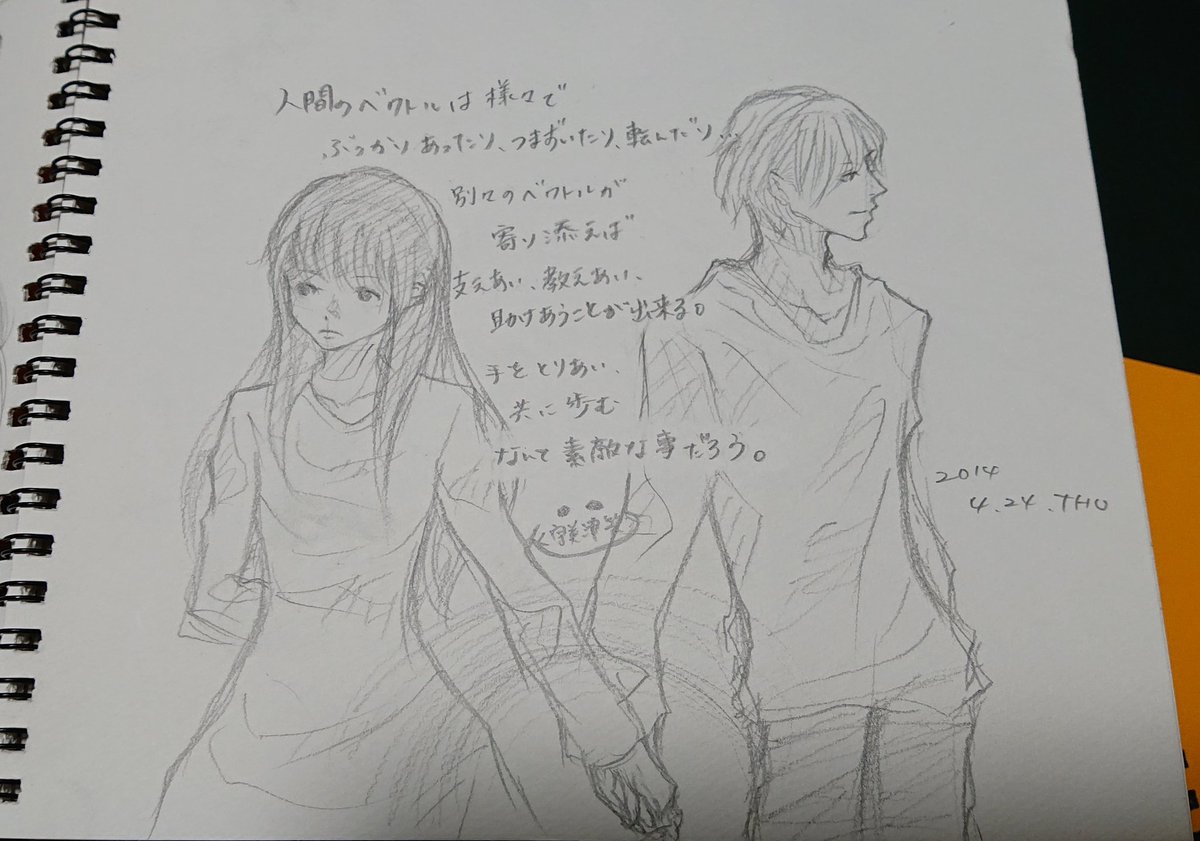 人間のベクトルは様々で
ぶつかりあったり、つまずいたり、転んだり…
別々のベクトルが
寄り添えば
支えあい、教えあい、
助けあうことが出来る。
手をとりあい、
共に歩む
なんて素敵な事だろう。
2014
4.24.THU